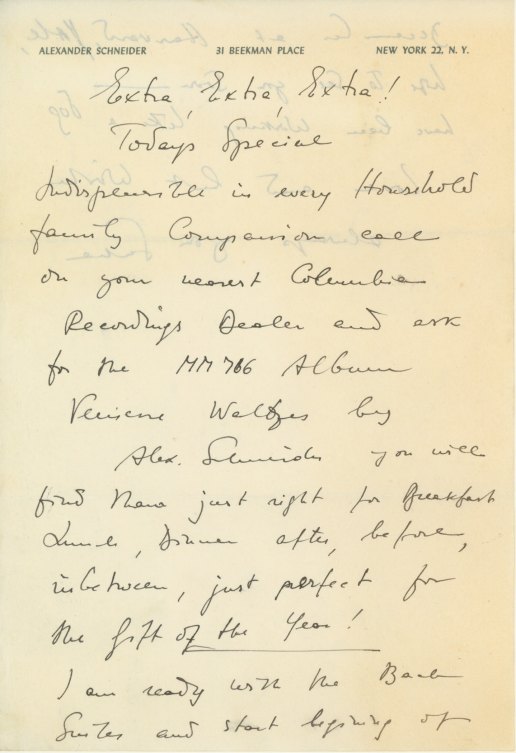 ALEXANDER SCHNEIDER 31 BEEKMAN PLACE NEW YORK 22, N. Y.
Extra, Extra, Extra!
Todays Special
Indispensible in every Household
family Companion call
on your nearest Columbia
Recordings Dealer and ask
for the MM 766 Album
Viennese Waltzes by
Alex. Schneider you will
find them just right for Breakfast
Lunch, Dinner after, before,
inbetween, just perfect for
the gift of the Year!
I am ready with the Bach
Suites and start begining of